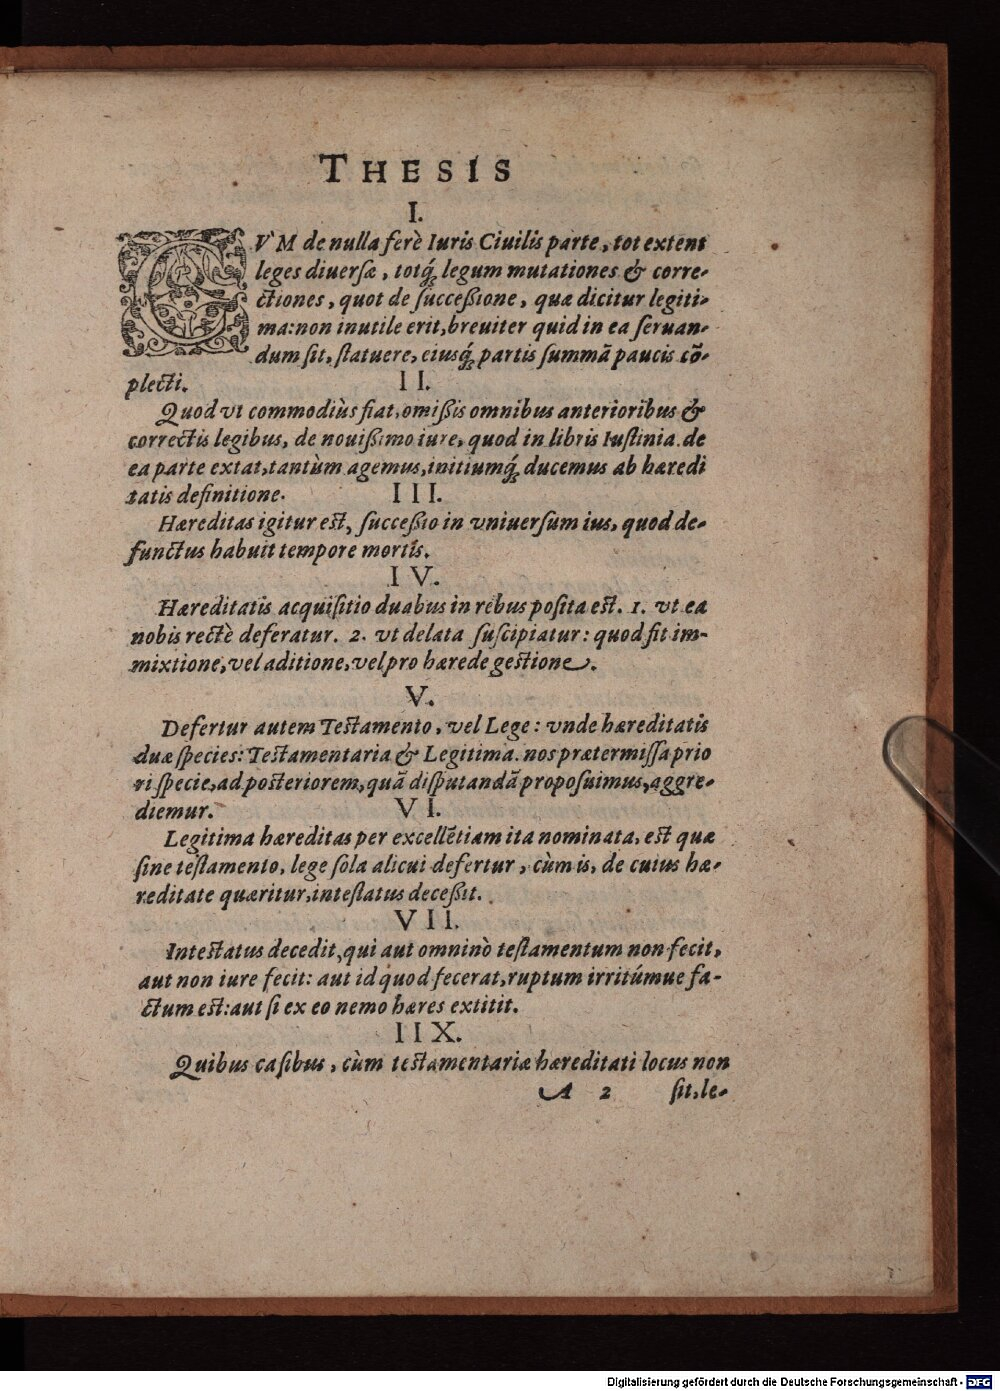 THESIS
I.
CVM de nulla ferè Iuris Ciuilis parte, tot extent
leges diuersæ, totq́; legum mutationes & corre-
ctiones, quot de successione, quæ dicitur legiti-
ma: non inutile erit, breuiter quid in ea seruan-
dum sit, statuere, eiusq́; partis summã paucis cõ-
plecti. II.
Quod vt commodiùs fiat, omissis omnibus anterioribus &
correctis legibus, de nouissimo iure, quod in libris Iustinia. de
ea parte extat, tantùm agemus, initiumq́; ducemus ab hæredi
tatis definitione. III.
Hæreditas igitur est, successio in vniuersum ius, quod de-
functus habuit tempore mortis.
IV.
Hæreditatis acquisitio duabus in rebus posita est. 1. vt ea
nobis rectè deferatur. 2. vt delata suscipiatur: quod fit im-
mixtione, vel aditione, vel pro hærede gestione.
V.
Defertur autem Testamento, vel Lege: vnde hæreditatis
duæ species: Testamentaria & Legitima. nos prætermissa prio
ri specie, ad posteriorem, quã disputandã proposuimus, aggre-
diemur. VI.
Legitima hæreditas per excellẽtiam ita nominata, est quæ
sine testamento, lege sola alicui defertur, cùm is, de cuius hæ-
reditate quæritur, intestatus decessit.
VII.
Intestatus decedit, qui aut omninò testamentum non fecit,
aut non iure fecit: aut id quod fecerat, ruptum irritúmue fa-
ctum est: aut si ex eo nemo hæres extitit.
IIX.
Quibus casibus, cùm testamentariæ hæreditati locus non
A 2 sit, le-
Digitalisierung gefördert durch die Deutsche Forschungsgemeinschaft - DFG